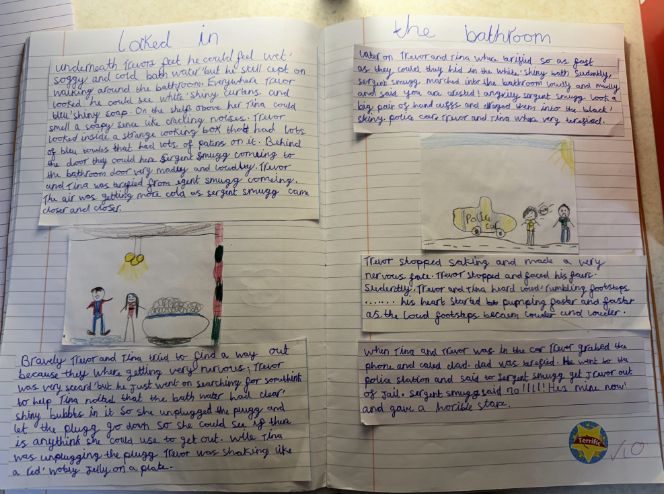 locked in
underneath Trevors feet he could feel wet'
soggy and cold bath water' but he still cept on
walking around the bathroom. Everywhere Trevor
looked he could see white' shiny curtans and
bleu' shiny soap. On the shelf above her Tina could
smell a soapy sence like cracling noises. Trevor
looked inside a strange looking box that had lots
of bleu towles that had lots of patans on it. Behind
the door they could hear sergent smugg comeing to
the bathroom door very madley and loudley. Trevor
and Tina was terafied from sgent smugg comeing.
The air was getting more cold as sergent smugg came
closer and closer.
Bravely Trevor and Tina tried to find a way out
because they where getting very nurious, Trevor
was very sceard' but he just went on searching for somethink
to help Tina noticed that the bath water had clear'
shiny bubbls in it so she unplugged the plugg and
let the plugg go down so she could see if there
is anythink she could use to get out. While Tina
was unplugging the plugg Trevor was shaking like
a red' wobly Jelly on a plate.
the bathroom
Later on Trevor and Tina where terified so as fast
as they could they hid in the white' shiny bath. Suddenly,
sergent smugg marched into the bathroom loudly and madly
and said you are arested! angrely sergent smugg took a
big pair of hand cuffs and draged them into the black'
shiny police car. Trevor and Tina where very terefied.
Police
car
Trevor stopped saking and made a very
nervous face. Trevor stopped and faced his fears.
Sudently, Trevor and Tina heard loud rumbling footsteps
....... his heart started pumping faster and faster
as the loud footsteps becam louder and louder.
When Tina and Trevor was in the car Trevor grabed the
phone and caled dad. dad was terefied. He went to the
police station and said to sergent smugg get Trevor out
of Jail. Sergent smugg said no!!!!! Hes mine now'
and gave a horible stare.
Terrific